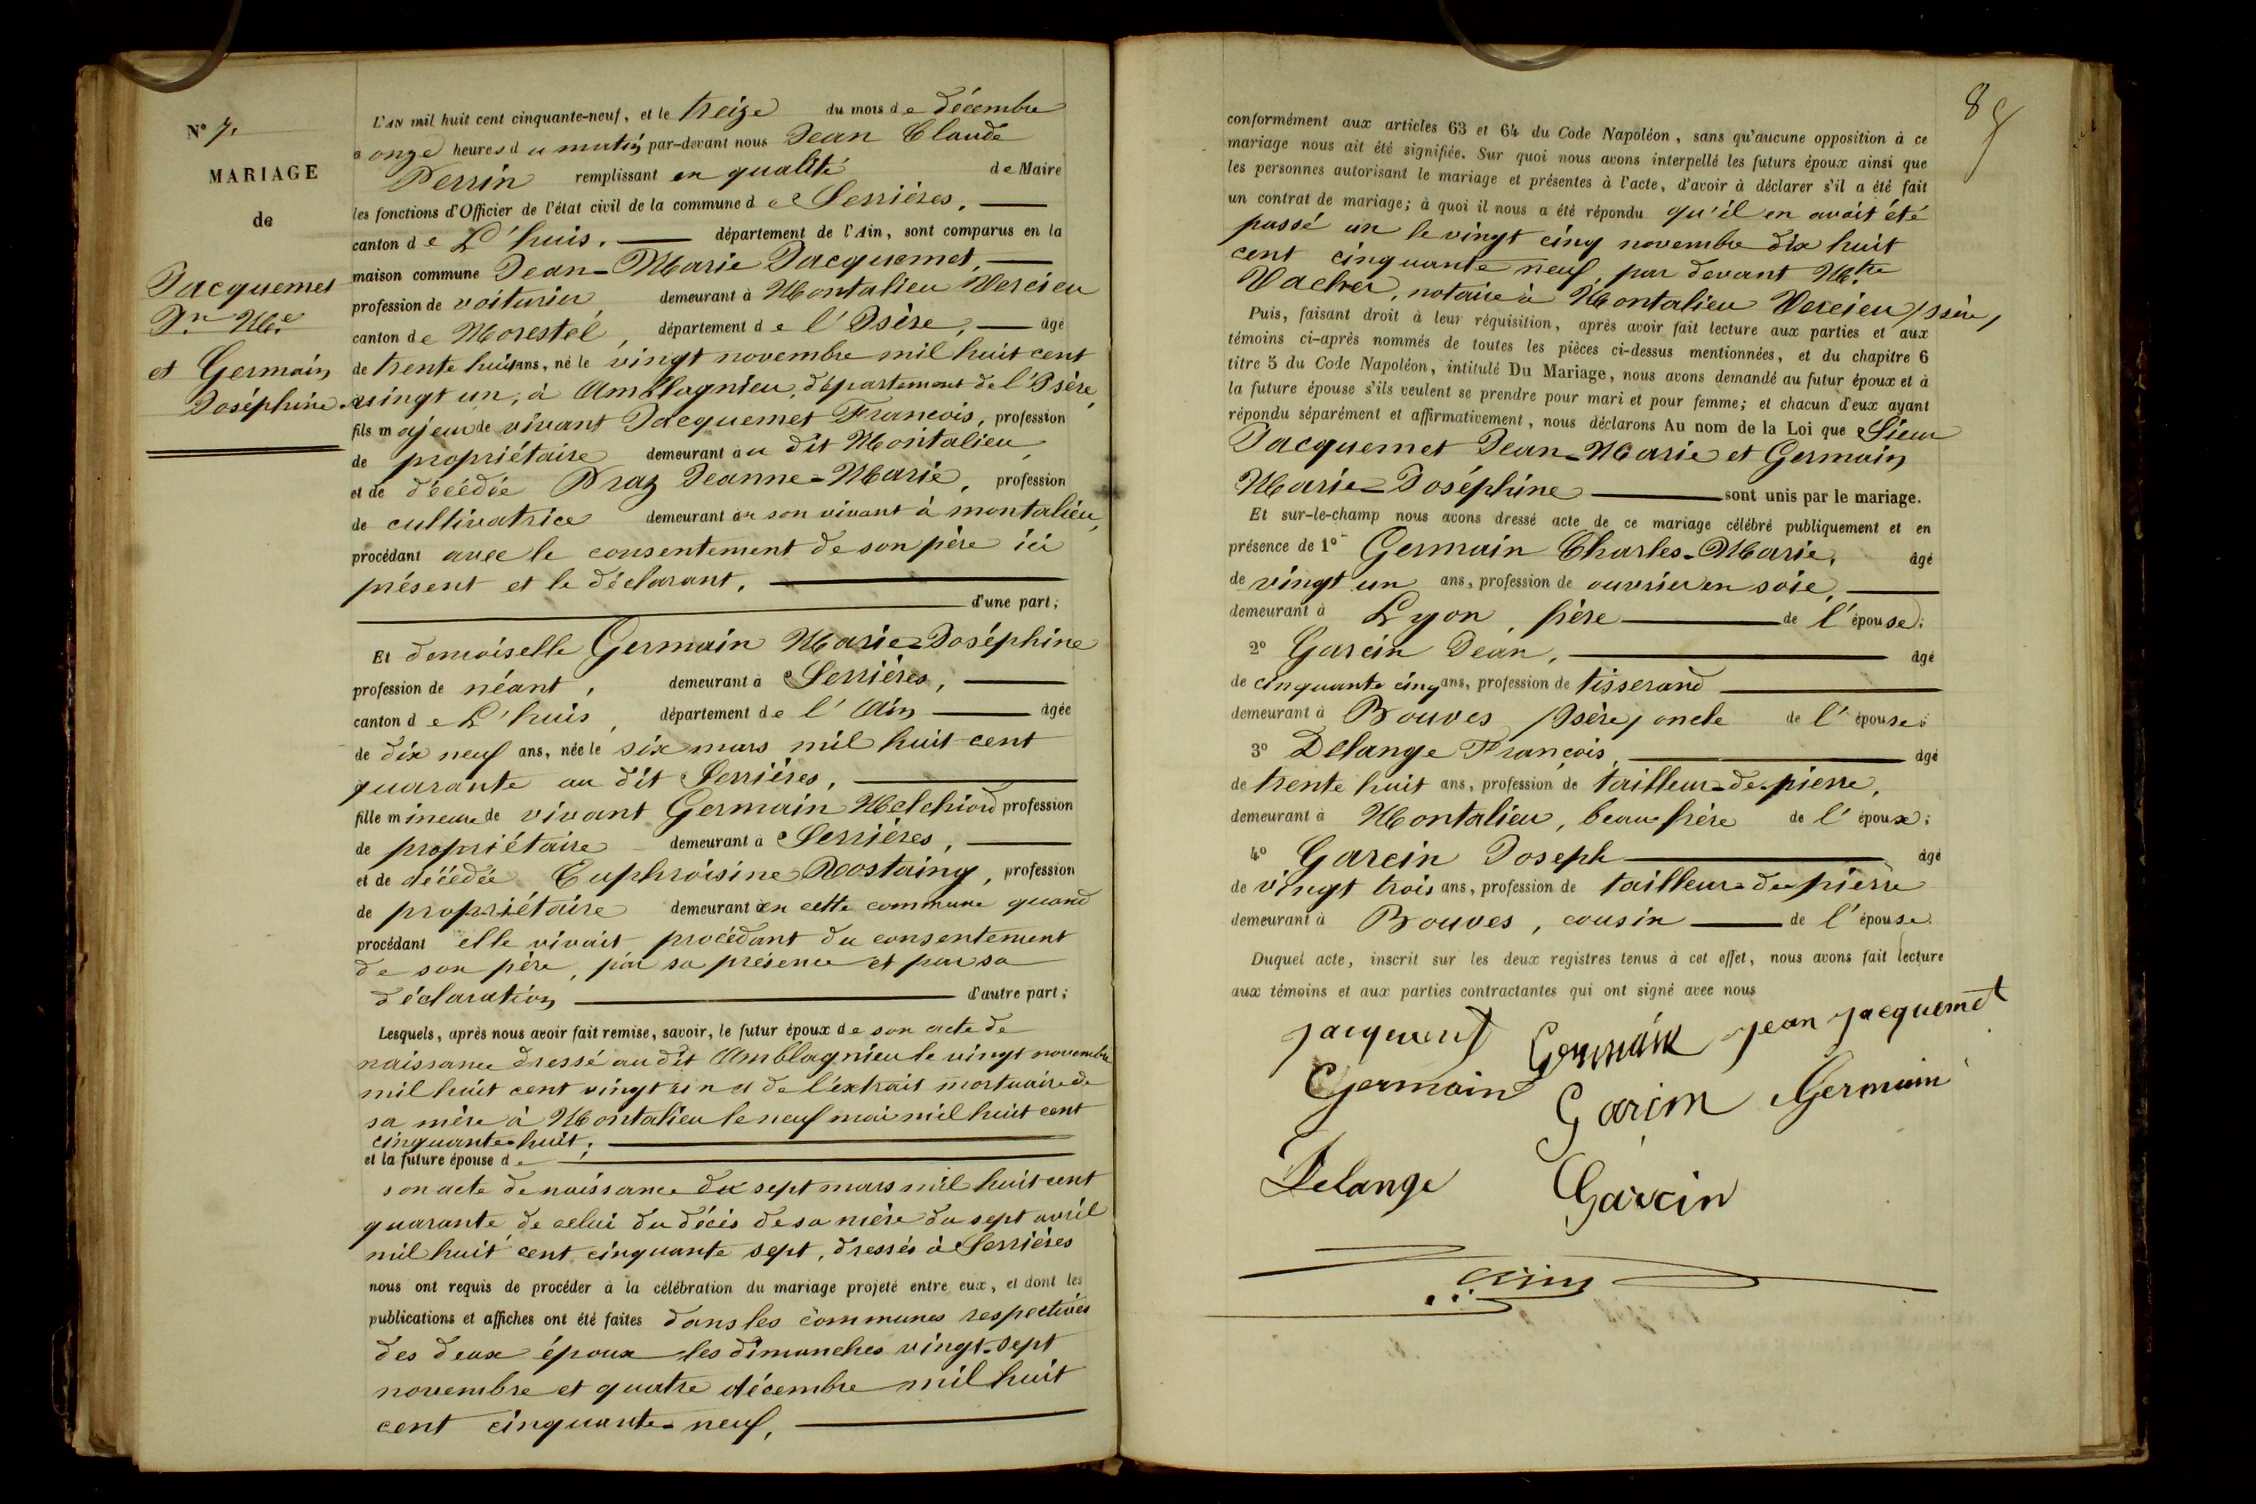 N° 7.
MARIAGE
de
Jacquemet
Jn Mie
et Germain
Joséphine.
L'AN mil huit cent cinquante-neuf, et le treize du mois de décembre
à onze heures du matin par-devant nous Jean Claude
Perrin remplissant en qualité de Maire
les fonctions d'Officier de l'état civil de la commune de Serrières,
canton de L'huis, département de l'Ain, sont comparus en la
maison commune Jean-Marie Jacquemet,
profession de voiturier demeurant à Montalieu Vercieu
canton de Morestel, département de l'Isère, âgé
de trente huit ans, né le vingt novembre mil huit cent
vingt un, à Amblagnieu, département de l'Isère,
fils majeur de vivant Jacquemet Francois, profession
de propriétaire demeurant au dit Montalieu,
et de décédée Praz Jeanne-Marie, profession
de cultivatrice demeurant en son vivant à montalieu,
procédant avec le consentement de son père ici
présent et le déclarant,
d'une part;
Et demoiselle Germain Marie-Joséphine
profession de néant, demeurant à Serrières,
canton de L'huis, département de l'Ain âgée
de dix neuf ans, née le six mars mil huit cent
quarante au dit Serrières,
fille mineure de vivant Germain Melchiord profession
de propriétaire demeurant à Serrières,
et de décédée Euphroisine Rostaing, profession
de propriétaire demeurant en cette commune quand
procédant elle vivait procédant du consentement
de son père, par sa présence et par sa
déclaration d'autre part;
Lesquels, après nous avoir fait remise, savoir, le futur époux de son acte de
naissance dressé au dit Amblagnieu le vingt novembre
mil huit cent vingt un et de l'extrait mortuaire de
sa mère à Montalieu le neuf mai mil huit cent
cinquante-huit;
et la future épouse de
son acte de naissance du sept mars mil huit cent
quarante, de celui du décès de sa mère du sept avril
mil huit cent cinquante sept, dressés à Serrières
nous ont requis de procéder à la célébration du mariage projeté entre eux, et dont les
publications et affiches ont été faites dans les communes respectives
des deux époux les dimanches vingt-sept
novembre et quatre décembre mil huit
cent cinquante-neuf,
conformément aux articles 63 et 64 du Code Napoléon, sans qu'aucune opposition à ce
mariage nous ait été signifiée. Sur quoi nous avons interpellé les futurs époux ainsi que
les personnes autorisant le mariage et présentes à l'acte, d'avoir à déclarer s'il a été fait
un contrat de mariage; à quoi il nous a été répondu qu'il en avait été
passé un le vingt cinq novembre dix huit
cent cinquante neuf, par devant Mtre
Vacher, notaire à Montalieu Vercieu, Isère,
Puis, faisant droit à leur réquisition, après avoir fait lecture aux parties et aux
témoins ci-après nommés de toutes les pièces ci-dessus mentionnées, et du chapitre 6
titre 5 du Code Napoléon, intitulé Du Mariage, nous avons demandé au futur époux et à
la future épouse s'ils veulent se prendre pour mari et pour femme; et chacun d'eux ayant
répondu séparément et affirmativement, nous déclarons Au nom de la Loi que Sieur
Jacquemet Jean-Marie et Germain
Marie-Joséphine sont unis par le mariage.
Et sur-le-champ nous avons dressé acte de ce mariage célébré publiquement et en
présence de 1° Germain Charles-Marie, âgé
de vingt un ans, profession de ouvrier en soie,
demeurant à Lyon, frère de l'épouse;
2° Garcin Jean, âgé
de cinquante cinq ans, profession de tisserand
demeurant à Bouves, Isère, oncle de l'épouse;
3° Delange François, âgé
de trente huit ans, profession de tailleur-de-pierre,
demeurant à Montalieu, beau frère de l'époux;
4° Garcin Joseph âgé
de vingt trois ans, profession de tailleur-de-pierre
demeurant à Bouves, cousin de l'épouse.
Duquel acte, inscrit sur les deux registres tenus à cet effet, nous avons fait lecture
aux témoins et aux parties contractantes qui ont signé avec nous
jacquemet Germain jean jacquemet
Germain Garcin Germain
Delange Garcin